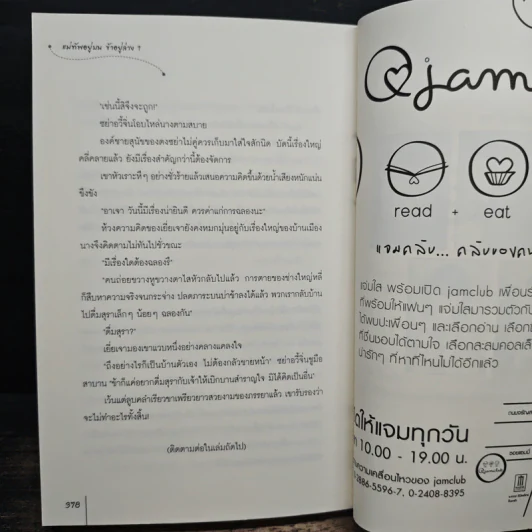 แม่ทัพอยู่บน ข้าอยู่ล่าง 1
"เช่นนี้สิจึงจะถูก!"
เซย่าอวี้จิ่นโอบไหล่นางตามสบาย
องค์ชายสุนัขของตงซย่าไม่คู่ควรเก็บมาใส่ใจสักนิด บัดนี้เรื่องใหญ่
คลี่คลายแล้ว ยังมีเรื่องสำคัญกว่านี้ต้องจัดการ
เขาหัวเราะหึๆ อย่างชั่วร้ายแล้วเสนอความคิดขึ้นด้วยน้ำเสียงหนักแน่น
ขึงขัง
"อาเจา วันนี้มีเรื่องน่ายินดี ควรค่าแก่การฉลองนะ"
ห้วงความคิดของเยี่ยเจายังคงหมกมุ่นอยู่กับเรื่องใหญ่ของบ้านเมือง
นางจึงคิดตามไม่ทันไปชั่วขณะ
"มีเรื่องใดต้องฉลองรึ"
"คนถ่อยขวางหูขวางตาไสหัวกลับไปแล้ว การตายของช่างใหญ่หลี่
ก็สืบหาความจริงจนกระจ่าง ปลดภาระบนบ่าข้าลงได้แล้ว พวกเรากลับบ้าน
ไปดื่มสุราเล็กๆ น้อยๆ ฉลองกัน"
"ดื่มสุรา?"
เยี่ยเจามองเขาแวบหนึ่งอย่างคลางแคลงใจ
"ถึงอย่างไรก็เป็นบ้านตัวเอง ไม่ต้องกลัวขายหน้า" เซย่าอวี้จิ่นชูมือ
สาบาน "ข้าก็แค่อยากดื่มสุรากับเจ้าให้เบิกบานสำราญใจ มิได้คิดเป็นอื่น"
เว้นแต่ลูบคลำเรียวขาเพรียวยาวสวยงามของภรรยาแล้ว เขารับรองว่า
จะไม่ทำอะไรทั้งสิ้น!
(ติดตามต่อในเล่มถัดไป)
378
jam
read + eat
แจมคลับ... คลับของคน
แจ่มใส พร้อมเปิด jamclub เพื่อน
ที่พร้อมให้แฟนๆ แจ่มใสมารวมตัวกัน
ได้พบปะเพื่อนๆ และเลือกอ่าน เลือก
ที่ชื่นชอบได้ตามใจ เลือกสะสมคอลเล็
น่ารักๆ ที่หาที่ไหนไม่ได้อีกแล้ว
ให้แจมทุกวัน
10.00 - 19.00 น.
ความเคลื่อนไหวของ jamclub
2886-5596-7, 0-2408-8395